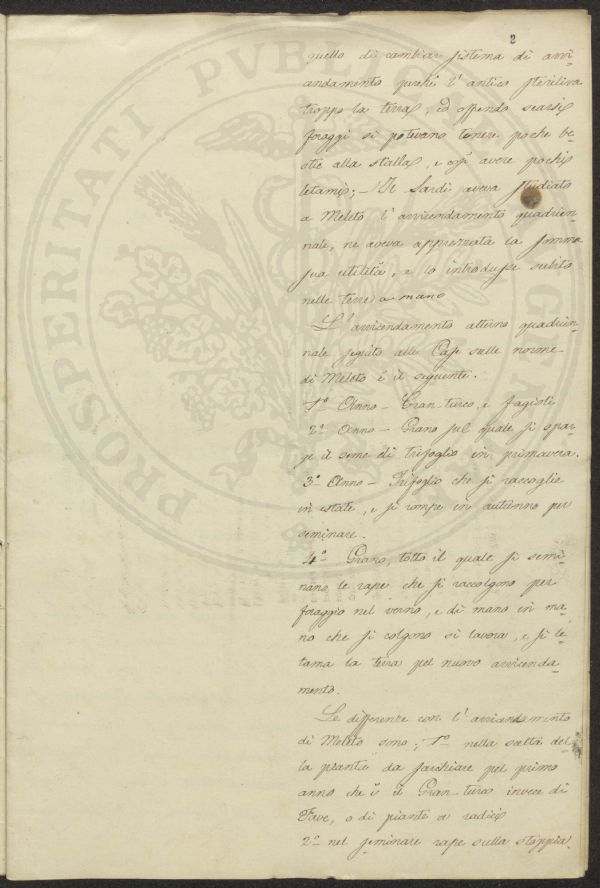 2
quello di cambiar sistema di avvi-
andamento perché l'antico steriliva
troppo la terra, ed essendo scarsi
foraggi si potevano tenere poche be-
stie alla stalla, e così avere pochi
letami; – Il Sardi aveva studiato
a Meleto l'avvicendamento quadrien-
nale, ne aveva apprezzata la somma
sua utilità, e lo introdusse subito
nelle terre a mano
L'avvicendamento alterno quadrien-
nale seguito alle Case sulle norme
di Meleto è il seguente.
1º Anno – Gran-turco, e fagioli
2º Anno – Grano sul quale si spar-
ge il seme di trifoglio in primavera.
3º Anno – Trifoglio che si raccoglie
in estate, e si rompe in autunno per
seminare.
4º Grano, tolto il quale si semi-
nano le rape che si raccolgono per
foraggio nel verno, e di mano in ma-
no che si colgono si lavora, e si le-
tama la terra pel nuovo avvicenda-
mento.
Le differenze con l'avvicendamento
di Meleto sono; 1º nella scelta del-
la pianta da sarchiare pel primo
anno che è il Gran-turco invece di
Fave, o di piante a radici
2º nel seminare rape sulla stoppia
PROSPERITATI PVBLICAE AVGENDAE